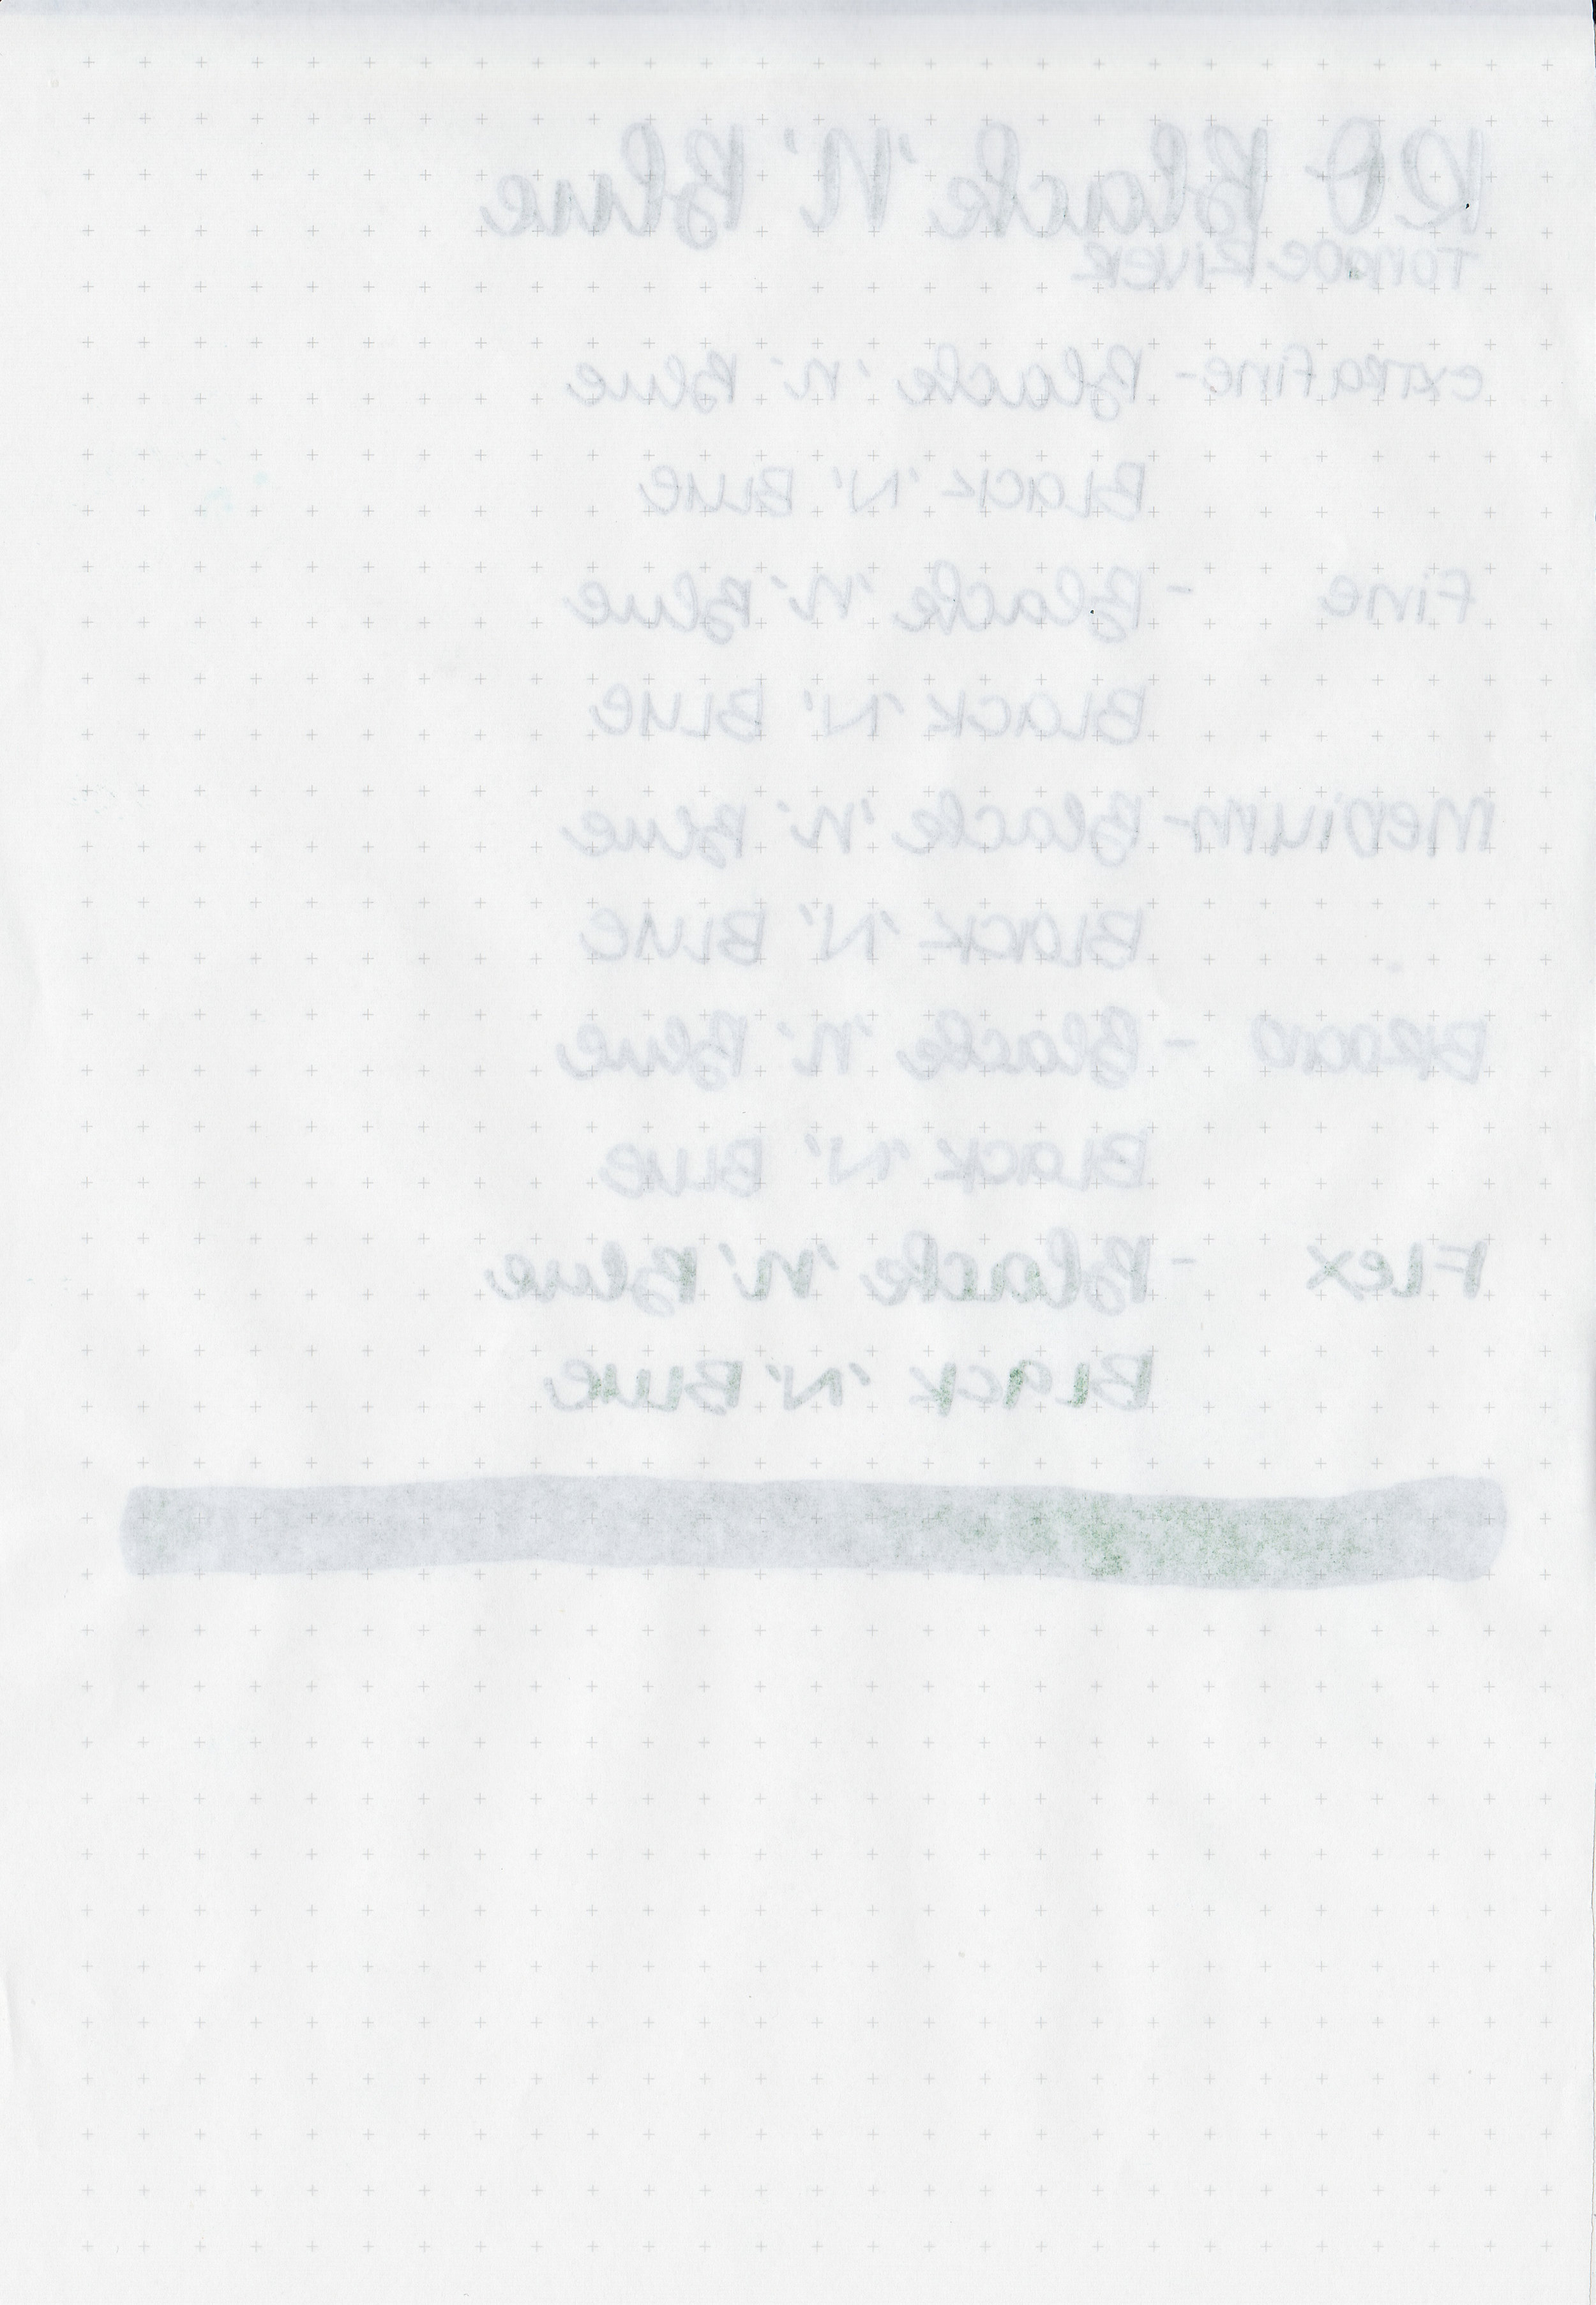 RO Black 'N' Blue
Tomoe River
extra fine - Black 'n' Blue
Black 'N' Blue
Fine - Black 'n' Blue
Black 'N' Blue
Medium - Black 'n' Blue
Black 'N' Blue
Broad - Black 'n' Blue
Black 'N' Blue
Flex - Black 'n' Blue
Black 'N' Blue